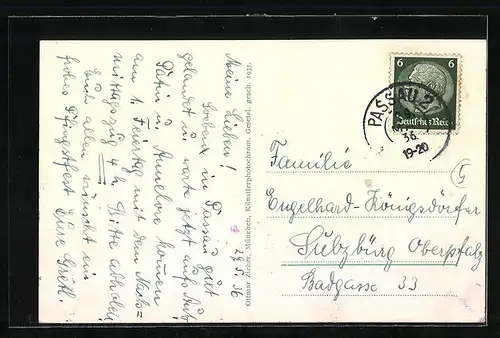 29.5.36
Meine Lieben!
Soeben in Passau gut
gelandet u. warte jetzt aufs Aut
Patin u. Annelore kommen
am 1. Feiertag mit dem Nach=
mittagszug 4 h. Bitte abholen
Euch allen wünscht ein
frohes Pfingstfest
Eure Gretl.
Ottmar Zieher, München, Künstlerphotochrom, Gesetzl. gesch. 1931.
6 6
Deutsches Reich
PASSAU 2
36
19-20
Familie
Engelhard-Königsdörfer
Sulzbürg Oberpfalz
Badgasse 33